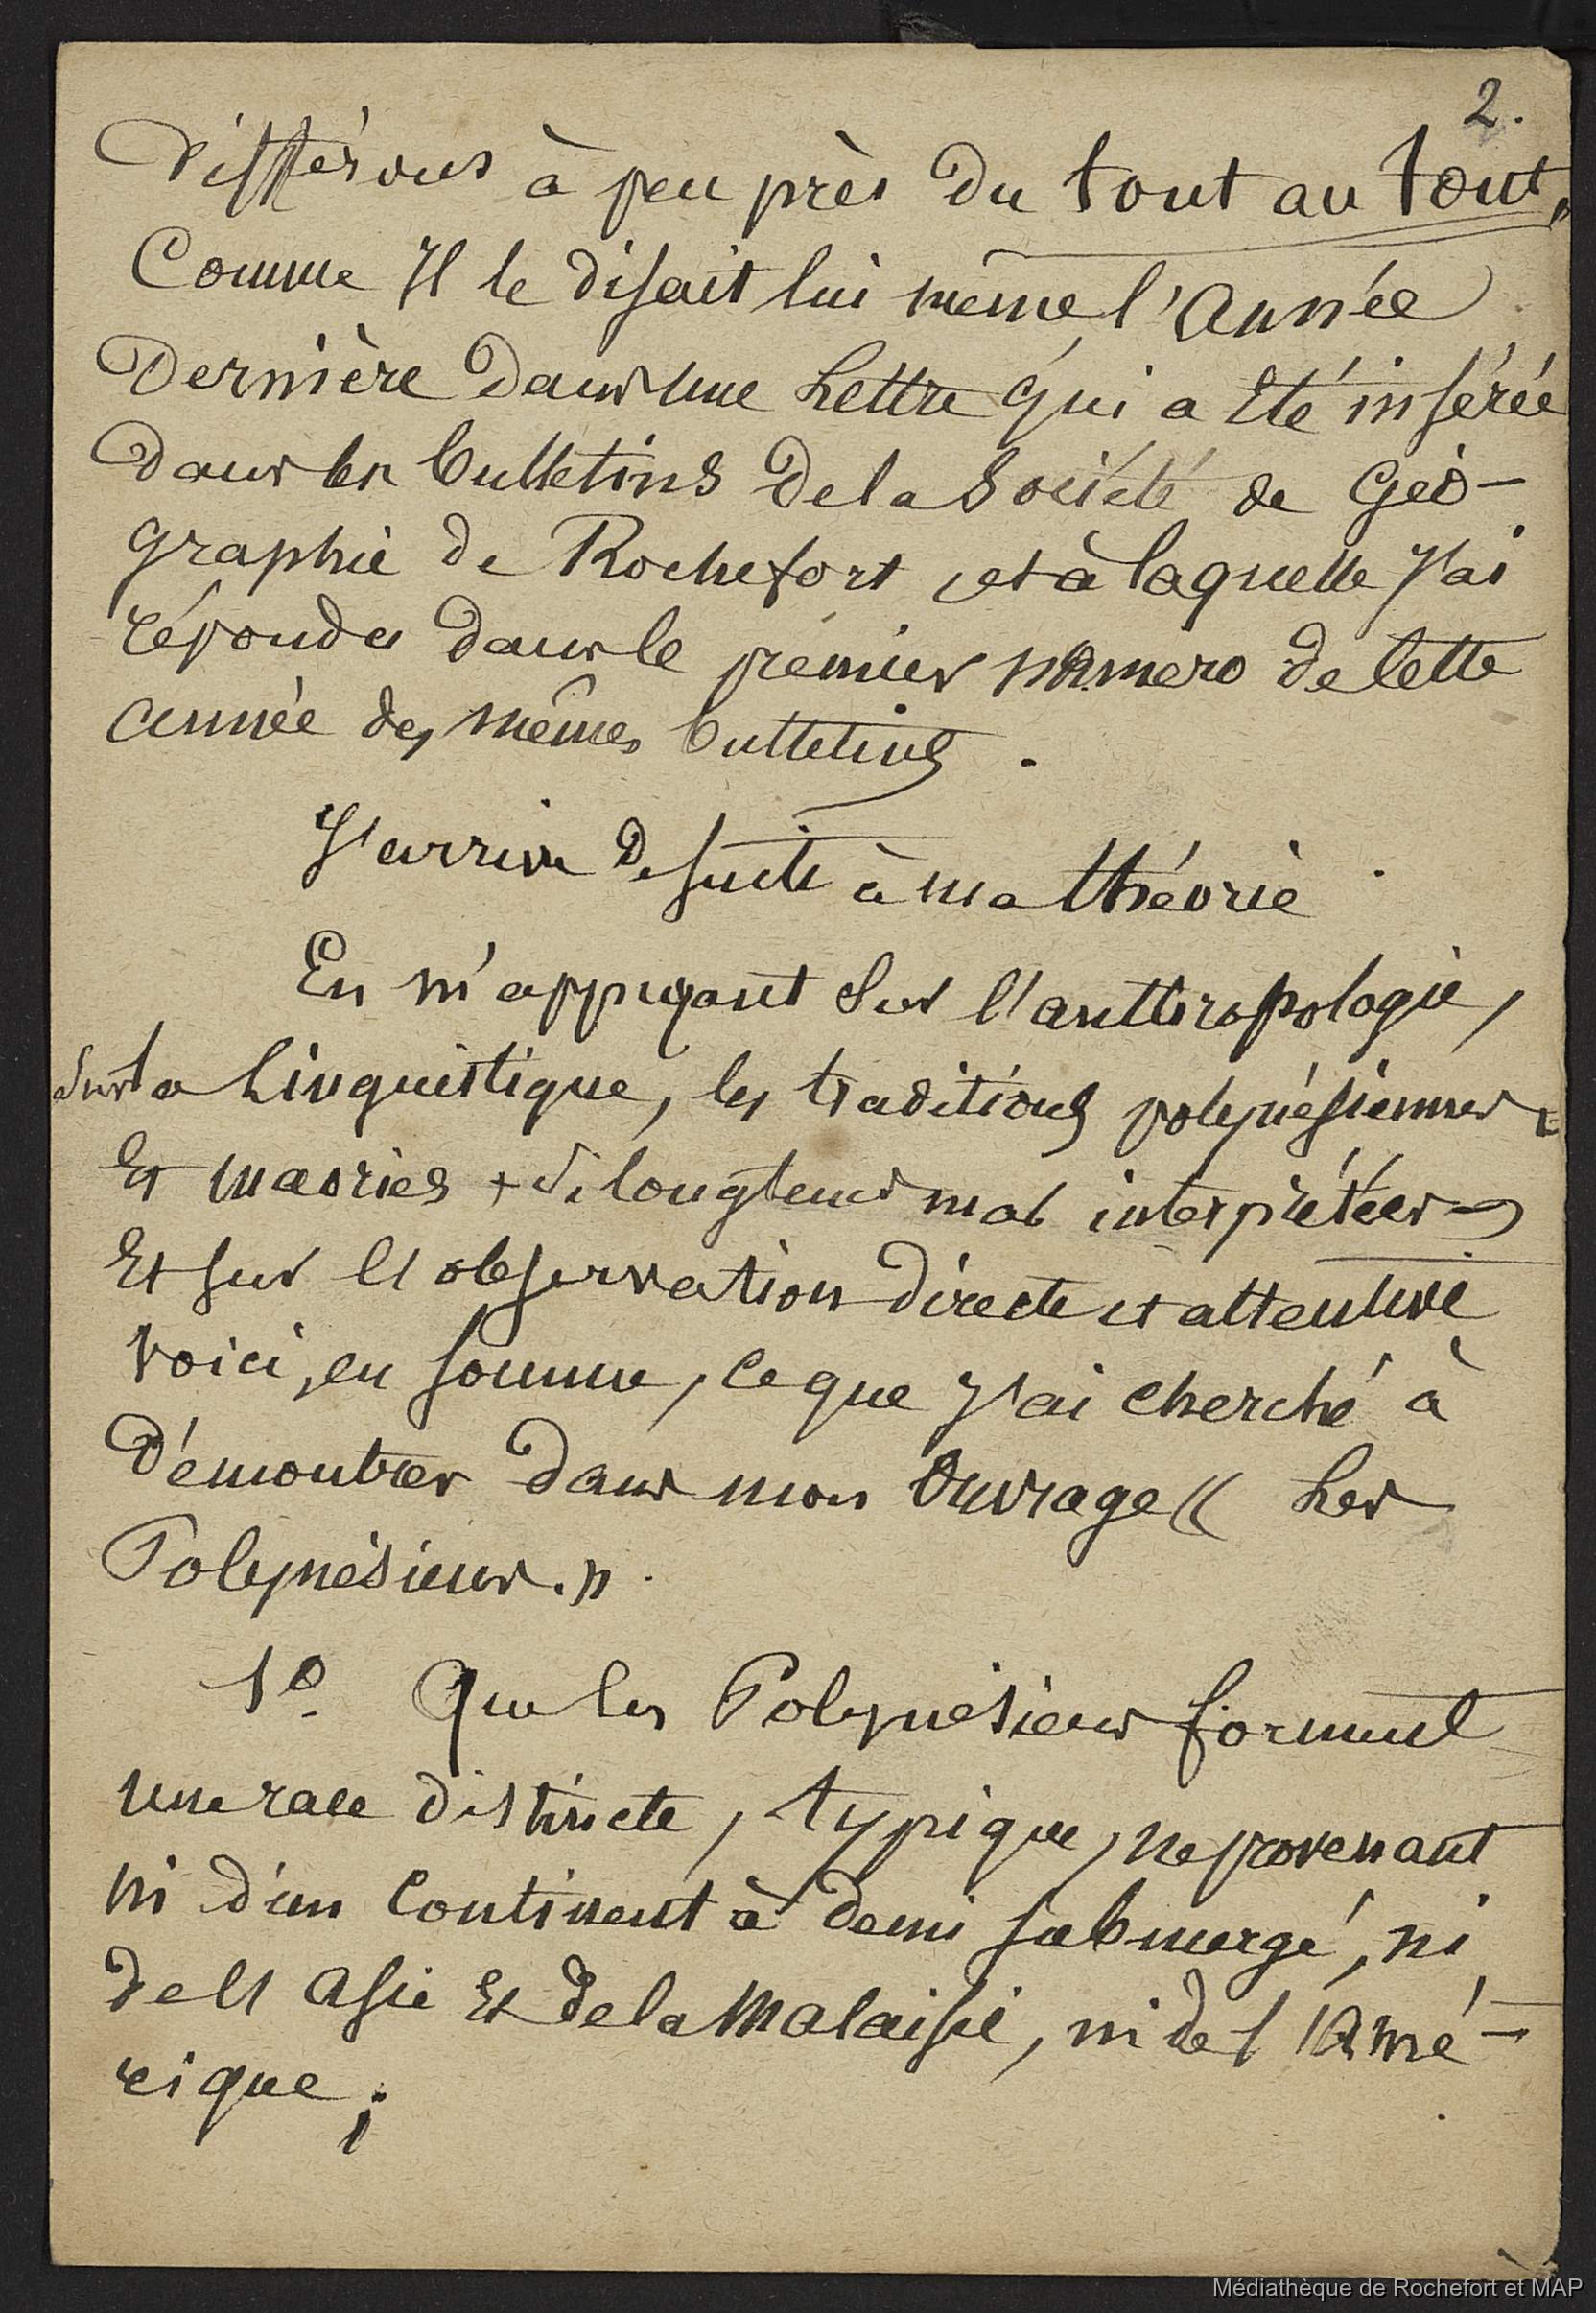 2.
différons à peu près du tout au tout,
Comme Il le disait lui même, l'année
dernière dans une Lettre qui a Eté insérée
dans les bulletins de la Société de Géo-
graphie de Rochefort et à laquelle J'ai
répondu dans le premier numero de cette
année des mêmes bulletins.
J'arrive de suite à ma théorie
En m'appuyant sur l'anthropologie,
sur la Linguistique, les traditions polynésiennes
Et maories + si longtems mal interprétées
Et sur l'observation directe et attentive
voici, en somme, ce que J'ai cherché à
démontrer dans mon Ouvrage « Les
Polynésiens. »
1º Que les Polynésiens forment
une race distincte, typique, ne provenant
ni d'un Continent à demi submergé, ni
de l'Asie Et de la Malaisie, ni de l'Amé-
rique;
Médiathèque de Rochefort et MAP